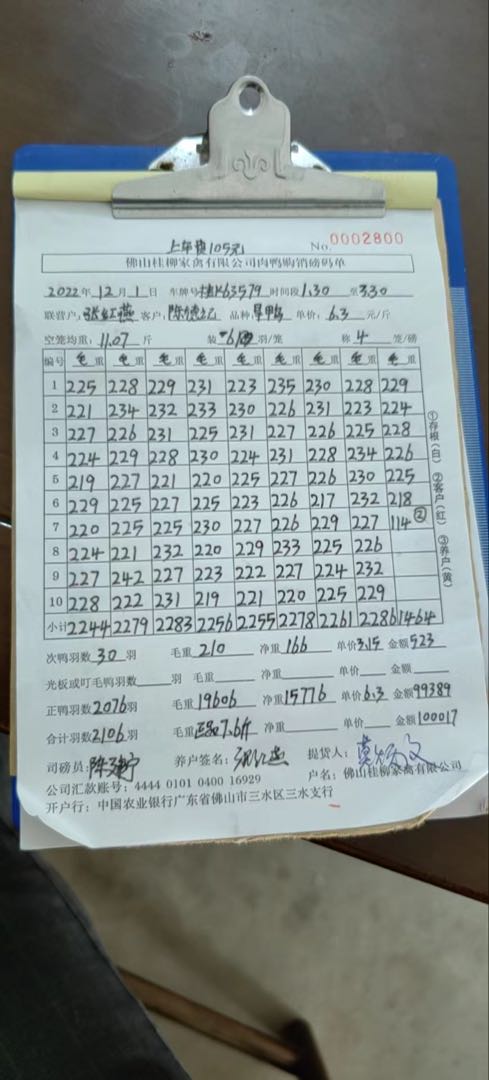 上车费105元 No. 0002800
佛山桂柳家禽有限公司肉鸭购销磅码单
2022年 12月 1日 车牌号桂K63579时间段1.30至3.30
联营户:张红燕 客户: 品种旱鸭 单价:6.3元/斤
空笼均重:11.07斤 装 6 羽/笼 称4笼/磅
编号 毛重 毛重 毛重 毛重 毛重 毛重 毛重 毛重 毛重
1 225 228 229 231 223 235 230 228 229
2 221 234 232 233 230 226 231 223 224
3 227 226 231 225 231 227 226 225 228
4 224 229 228 230 224 231 228 234 226
5 219 227 221 220 225 227 226 230 225
6 229 225 227 225 223 226 217 232 218
7 220 225 225 230 227 226 229 227 114 ②
8 224 221 232 220 229 233 225 226
9 227 242 227 223 222 227 224 232
10 228 222 231 219 221 220 225 229
小计 2244 2279 2283 2256 2255 2278 2261 2286 1464
次鸭羽数30羽 毛重210 净重166 单价3.15 金额523
光板或叮毛鸭羽数 羽 毛重 净重 单价 金额
正鸭羽数2076羽 毛重19606 净重15776 单价6.3 金额99389
合计羽数2106羽 毛重 7.6斤 净重 单价 金额100017
司磅员: 养户签名: 提货人:
公司汇款账号:4444 0101 0400 16929 户名:佛山桂柳家禽有限公司
开户行:中国农业银行广东省佛山市三水区三水支行
①存根(白) ②客户(红) ③养户(黄)